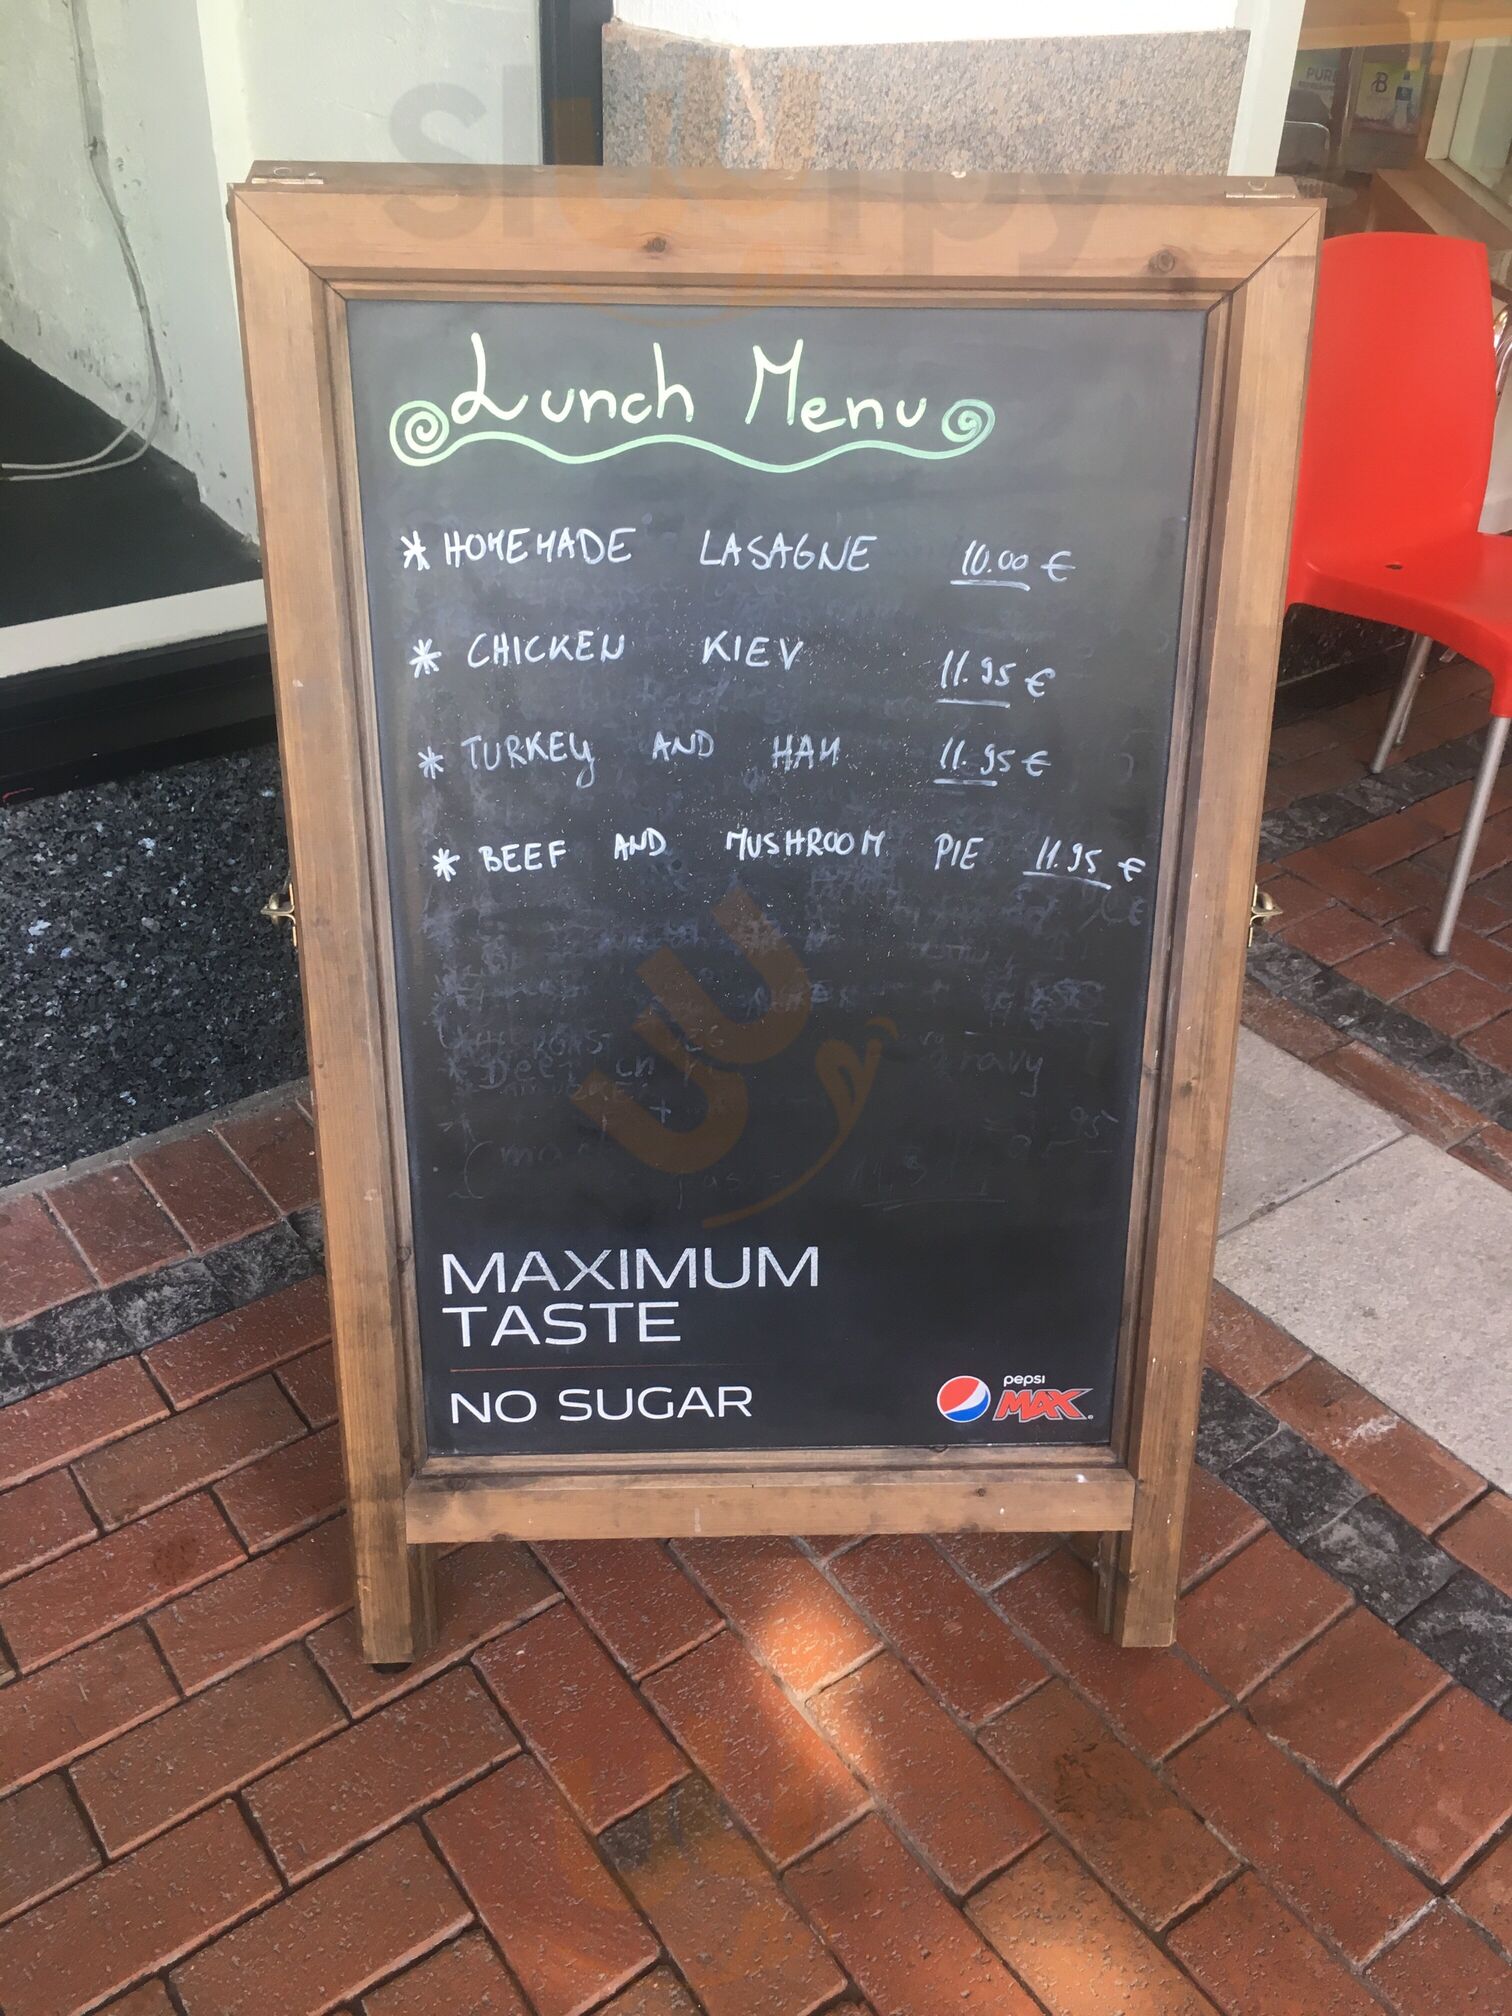 PURE
B
sluurpy
Lunch Menu
* HOMEMADE LASAGNE 10.00 €
* CHICKEN KIEV 11.95 €
* TURKEY AND HAM 11.95 €
* BEEF AND MUSHROOM PIE 11.95 €
gravy
MAXIMUM
TASTE
NO SUGAR
pepsi
MAX